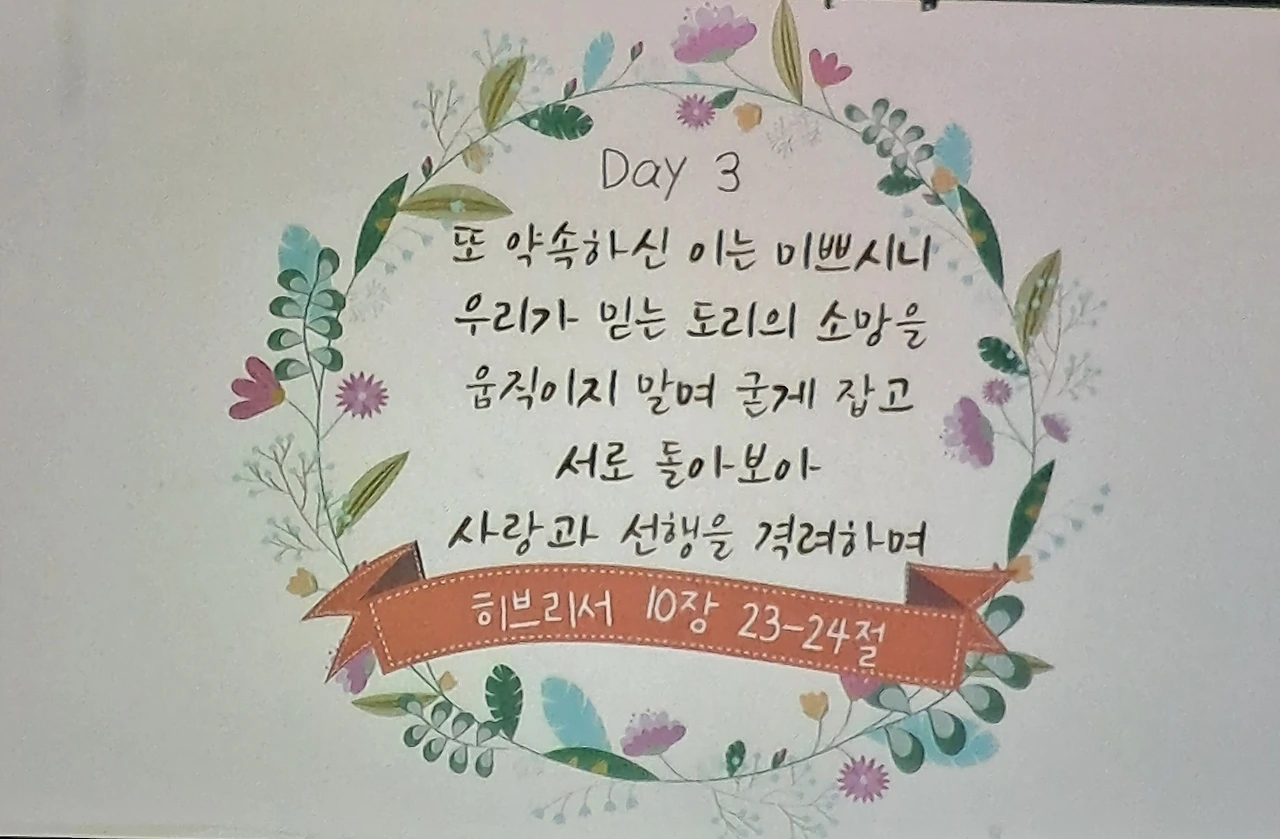 Day 3
또 약속하신 이는 미쁘시니
우리가 믿는 도리의 소망을
움직이지 말며 굳게 잡고
서로 돌아보아
사랑과 선행을 격려하며
히브리서 10장 23-24절